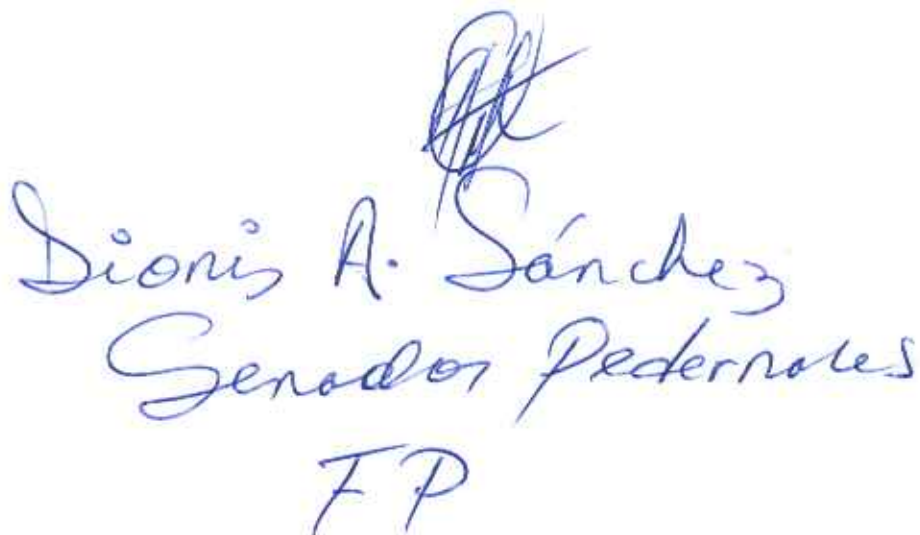 Dionis A. Sánchez
Senador Pedernales
FP